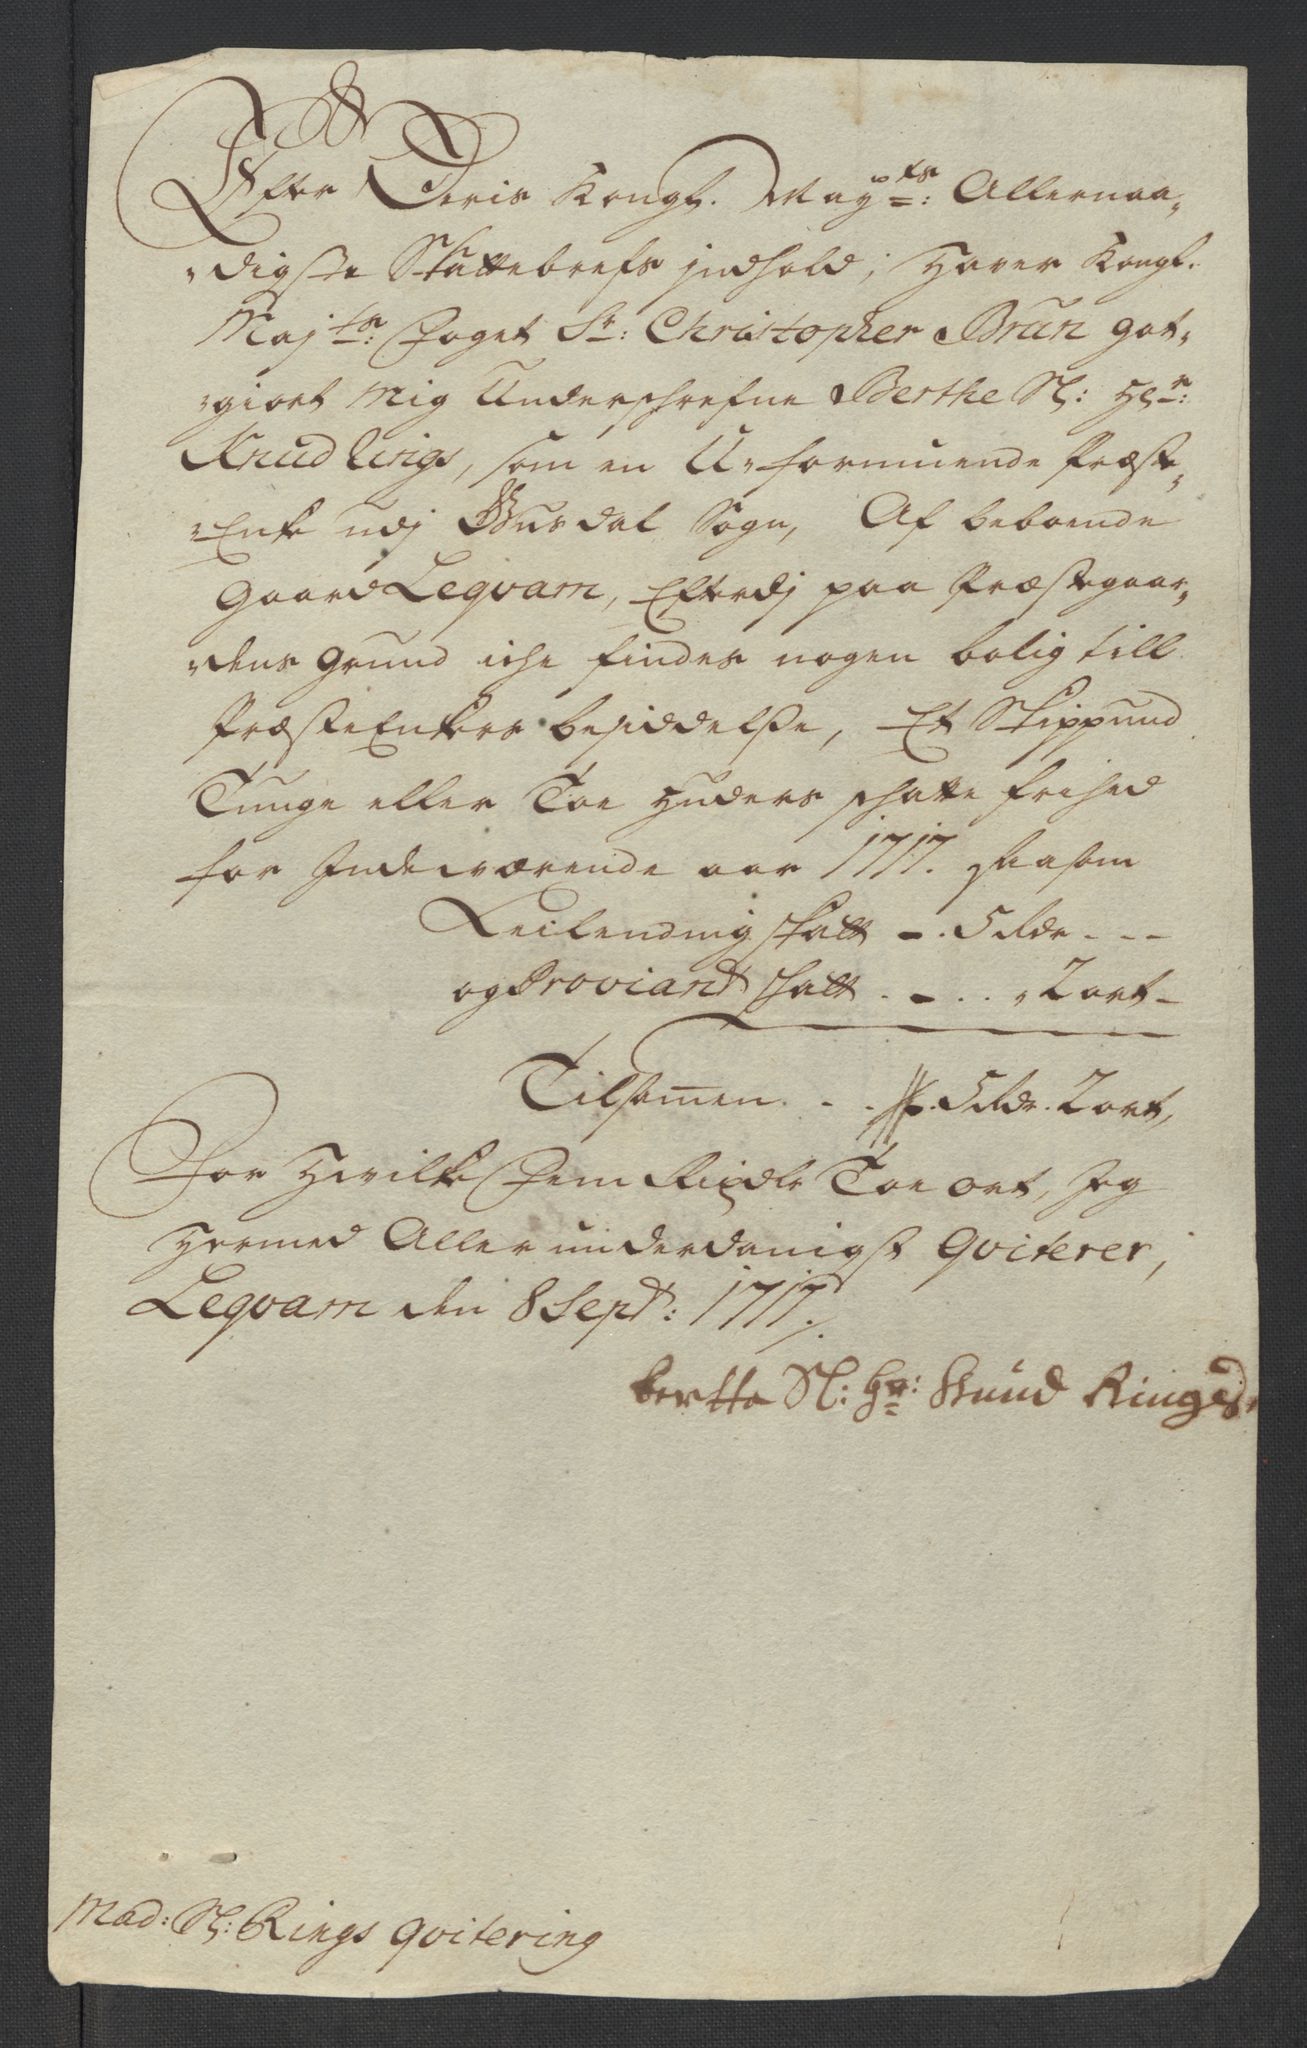 Efter Deris Kongl. May:ts: Allernaa-
-digste Skattebrefs jndhold, Haver Kongl.
Maj:ts: Foget Sr: Christopher Brun got-
-giort Mig Underschrefne Berthe Sl: Hr:
Knud Rings, som en U-formuende Præste-
-Enke udj Gusdal Sogn, Af beboende
Gaard Leqvam, Efterdj paa Præstegaar-
-dens Grund iche findes nogen bolig till
PræsteEnkers besiddelße, Et Skippund
Tunge eller Toe Huders schatte frihed
for Indeværende aar 1717. saasom
Leilendingskatt - . 5 Rdr - - -
og Proviant skatt . - . . „ 2 ort -
Tilsamen . - . 5 Rdr. 2 ort,
For Hvilke Fem Rixdlr Toe ort, Jeg
Hermed Allerunderdanigst Qviterer,
Leqvam den 8 Sept: 1717.
bertte Sl: Hr: Knud Ringes
Mad: Sl: Rings Qvitering